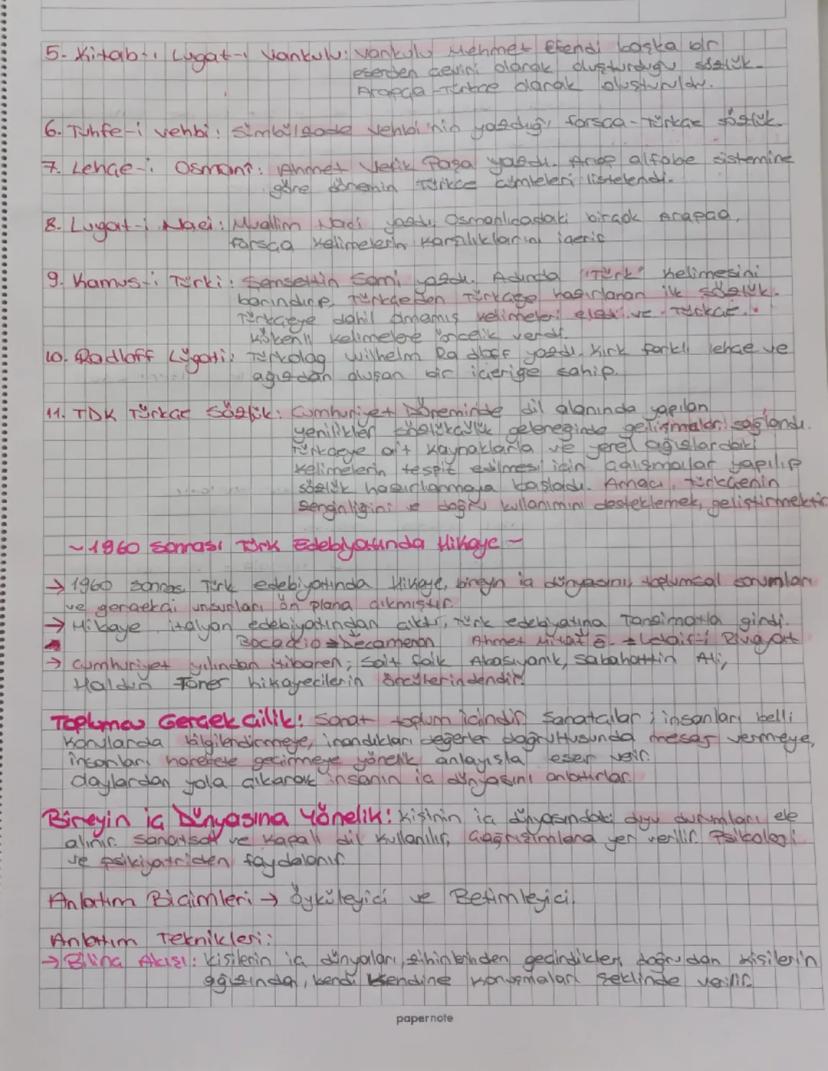 5- Kitab-ı Lugat-ı Vankulu: Vankulu Mehmet Efendi başka bir
eserden çeviri olarak oluşturduğu sözlük.
Arapça-Türkçe olarak oluşturuldu.
6. Tuhfe-i Vehbi: Sümbülzade Vehbi'nin yazdığı farsça-Türkçe sözlük.
7. Lehçe-i Osmani: Ahmet Vefik Paşa yazdı. Arap alfabe sistemine
göre dönemin Türkçe cümleleri listelendi.
8. Lugat-i Naci: Muallim Naci yazdı, Osmanlıcadaki birçok Arapça,
farsça kelimelerin karşılıklarını içerir
9. Kamus-i Türki: Şemsettin Sami yazdı. Adında "Türk" kelimesini
barındırıp Türkçeden Türkçeye hazırlanan ilk sözlük.
Türkçeye dahil olmamış kelimeleri eledi ve Türkçe
kökenli kelimelere öncelik verdi.
10. Radloff Lügati: Türkolog Wilhelm Radloff yazdı. Kırk farklı lehçe ve
ağızdan oluşan bir içeriğe sahip.
11. TDK Türkçe Sözlük: Cumhuriyet Döneminde dil alanında yapılan
yenilikler sözlükçülük geleneğinde gelişmeler sağlandı.
Türkçeye ait kaynaklarla ve yerel ağızlardaki
kelimelerin tespit edilmesi için çalışmalar yapılıp
sözlük hazırlanmaya başladı. Amacı, Türkçenin
zenginliğini ve doğru kullanımını desteklemek, geliştirmektir
~1960 Sonrası Türk Edebiyatında Hikaye~
→ 1960 sonrası Türk edebiyatında Hikaye, bireyin iç dünyasını, toplumsal sorunları
ve gerçekçi unsurları ön plana çıkmıştır.
→ Hikaye, italyan edebiyatından çıktı, Türk edebiyatına Tanzimatla girdi.
Bocaccio→Decameron Ahmet Mithat E. → Letaif-i Rivayat
→ Cumhuriyet yılından itibaren; Sait faik Abasıyanık, Sabahattin Ali,
Haldun Taner hikayecilerin öncülerindendir.
Toplumcu Gerçekçilik: Sanat toplum içindir. Sanatçılar; insanları belli
konularda bilgilendirmeye, inandıkları değerler doğrultusunda mesaj vermeye,
insanları harekete geçirmeye yönelik anlayışla eser verir.
Olaylardan yola çıkarak insanın iç dünyasını anlatırlar.
Bireyin iç Dünyasına Yönelik: Kişinin iç dünyasındaki duygu durumları ele
alınır. Sanatsal ve kapalı dil kullanılır, Çağrışımlara yer verilir. Psikoloji
ve psikiyatriden faydalanır.
Anlatım Biçimleri → Öyküleyici ve Betimleyici.
Anlatım Teknikleri:
→ Bilinç Akışı: Kişilerin iç dünyaları, zihinlerinden geçirdikleri doğrudan kişilerin
ağzından, kendi kendine konuşmaları şeklinde verilir.
papernote